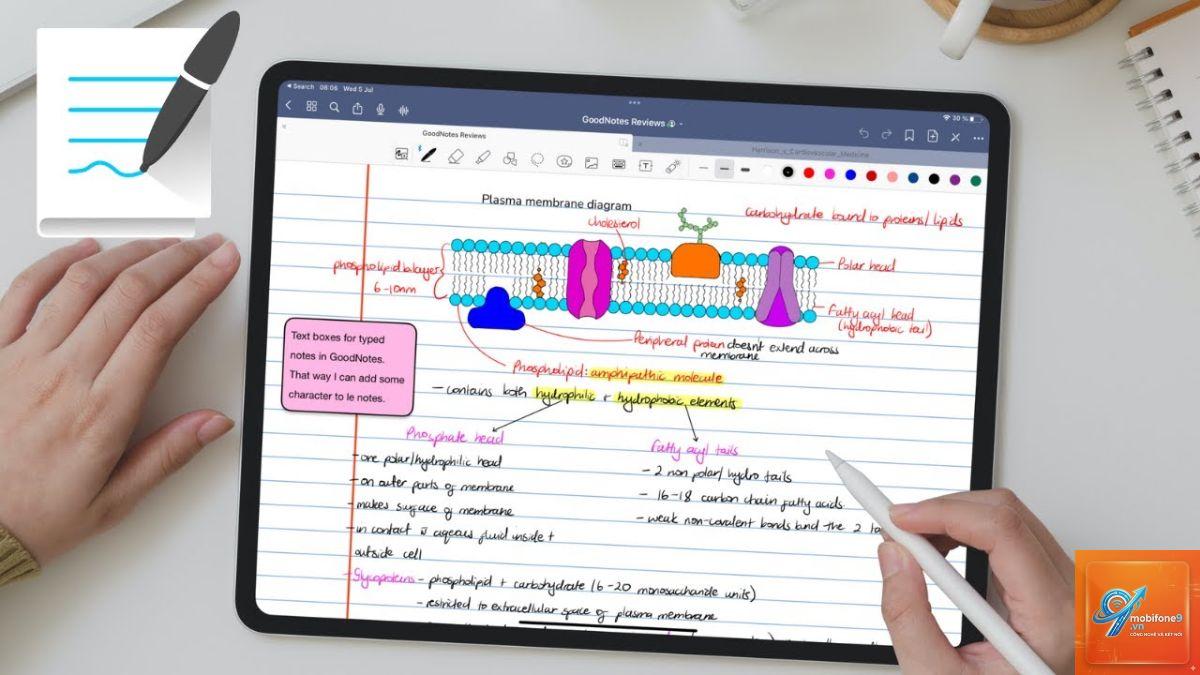 Search 08:06 Wed 5 Jul
30 %
GoodNotes Reviews
GoodNotes Reviews
Harrison_s_Cardiovascular_Medicine
Plasma membrane diagram
cholesterol
carbohydrate bound to proteins/lipids
phospholipid bilayer
6-10nm
Polar head
Fatty acyl head
(hydrophobic tail)
Peripheral protein doesnt extend across
membrane
Text boxes for typed
notes in GoodNotes.
That way I can add some
character to le notes.
Phospholipid: amphipathic molecule
- contains both hydrophilic + hydrophobic elements
Phosphate head
- one polar/hydrophilic head
- on outer parts of membrane
- makes surface of membrane
- in contact w aqueous fluid inside +
outside cell
Fatty acyl tails
- 2 non polar/ hydro tails
- 16-18 carbon chain fatty acids
- weak non-covalent bonds bind the 2
- Glycoproteins - phospholipid + carbohydrate (6-20 monosaccharide units)
- restricted to extracellular space of plasma membrane
mobifone9
.vn
CÔNG NGHỆ VÀ KẾT NỐI